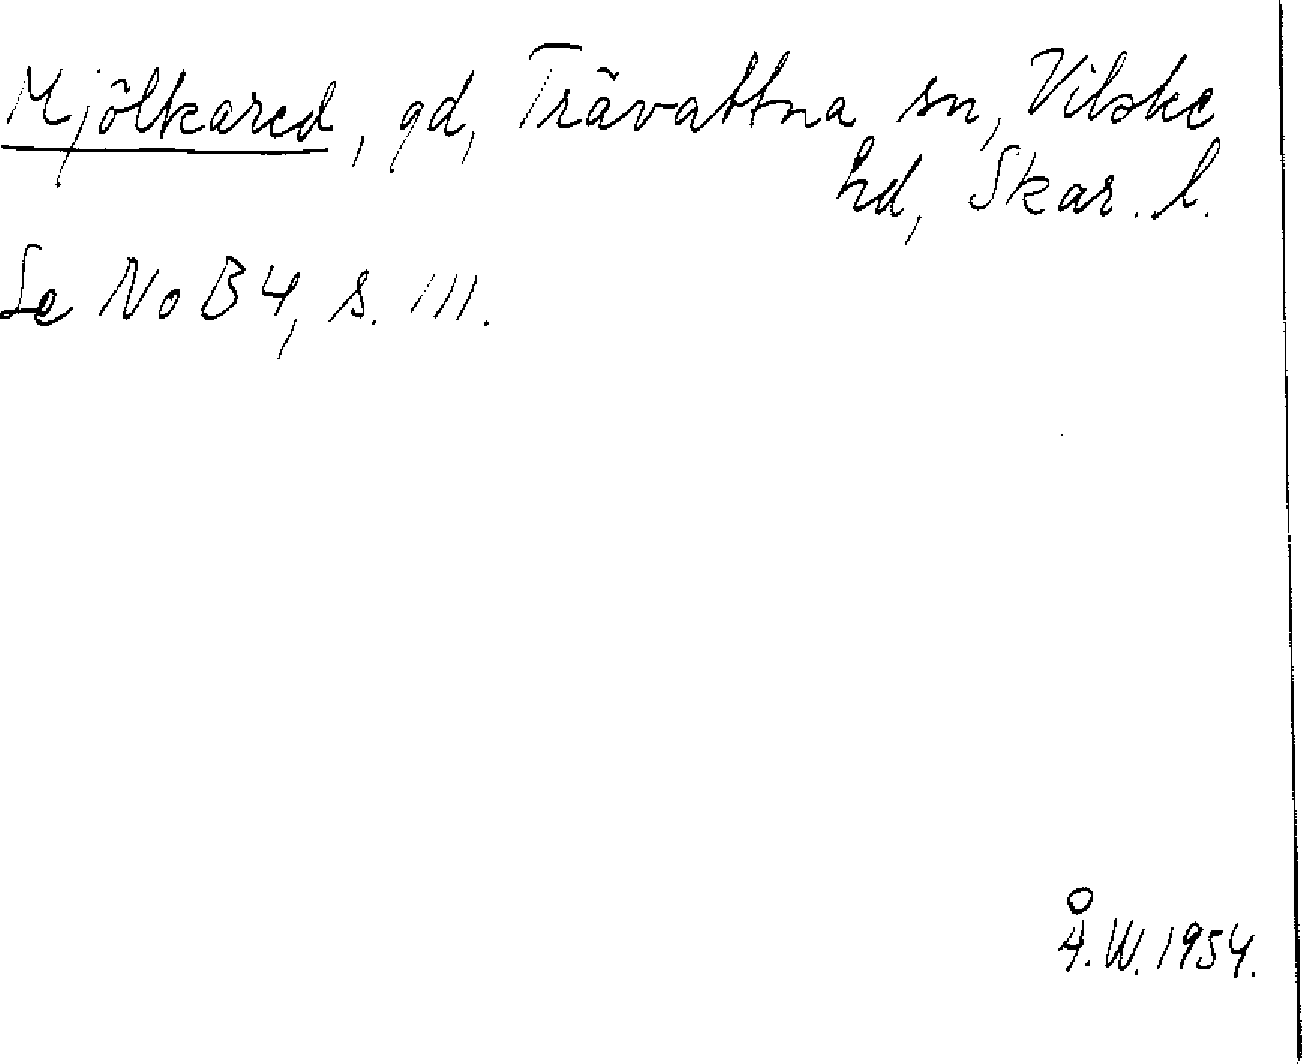 Mjölkared, gd, Trävattna sn, Vilske
hd, Skar. l.
Se NoB 4, s. 111.
Å.W. 1954.